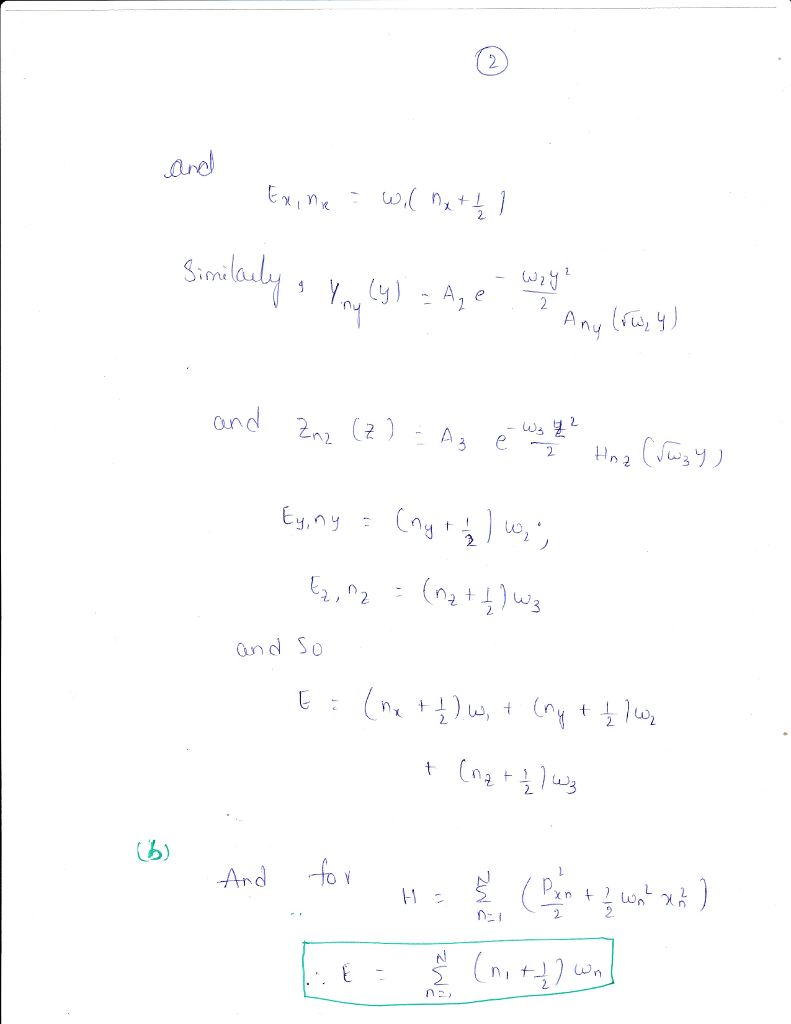 2
and
E_{x, n_x} = ω_1 ( n_x + 1/2 )
Similarly, Y_{ny} (y) = A_2 e^{- ω_2 y^2 / 2} A_{ny} (√ω_2 y)
and Z_{nz} (z) = A_3 e^{- ω_3 z^2 / 2} H_{nz} (√ω_3 y)
E_{y, ny} = (n_y + 1/2) ω_2 ;
E_{z, n_z} = (n_z + 1/2) ω_3
and so
E = (n_x + 1/2) ω_1 + (n_y + 1/2) ω_2
+ (n_z + 1/2) ω_3
(b)
And for H = Σ_{n=1}^{N} ( P_{xn}^2 / 2 + 1/2 ω_n^2 x_n^2 )
∴ E = Σ_{n=1}^{N} (n_1 + 1/2) ω_n